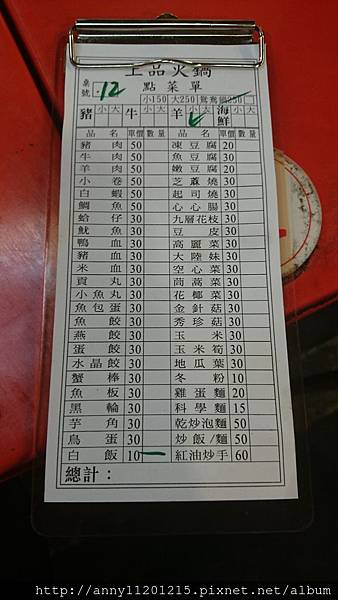 上品火鍋
點菜單
桌號 12
小150 大250 鴛鴦鍋250
豬 小 大 牛 小 大 羊 小 大 海鮮 小 大
品名 單價 數量 品名 單價 數量
豬肉 50 凍豆腐 20
牛肉 50 魚豆腐 30
羊肉 50 嫩豆腐 20
小卷 50 芝蔴燒 30
白蝦 50 起司燒 30
鯛魚 50 心心腸 30
蛤仔 30 九層花枝 30
魷魚 30 豆皮 30
鴨血 30 高麗菜 30
豬血 30 大陸妹 30
米血 30 空心菜 30
貢丸 30 茼蒿菜 30
小魚丸 30 花椰菜 30
魚包蛋 30 金針菇 30
魚餃 30 秀珍菇 30
燕餃 30 玉米 30
蛋餃 30 玉米筍 30
水晶餃 30 地瓜葉 30
蟹棒 30 冬粉 10
魚板 30 雞蛋麵 20
黑輪 30 科學麵 15
芋角 30 乾炒泡麵 50
鳥蛋 30 炒飯/麵 50
白飯 10 一 紅油炒手 60
總計：
http://anny11201215.pixnet.net/album